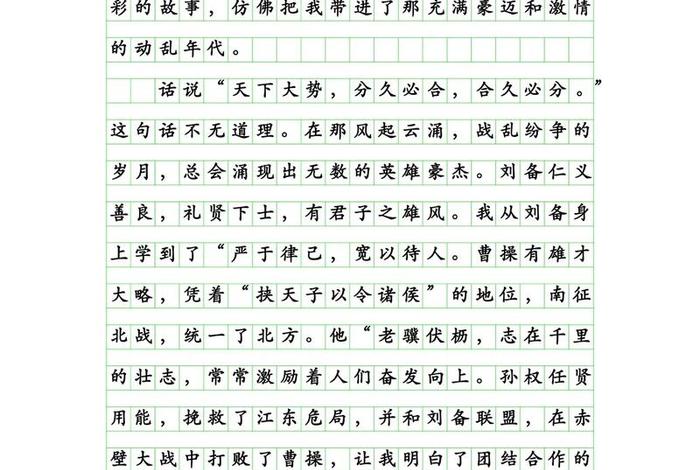 彩的故事，仿佛把我带进了那充满豪迈和激情
的动乱年代。
话说“天下大势，分久必合，合久必分。”
这句话不无道理。在那风起云涌，战乱纷争的
岁月，总会涌现出无数的英雄豪杰。刘备仁义
善良，礼贤下士，有君子之雄风。我从刘备身
上学到了“严于律己，宽以待人。曹操有雄才
大略，凭着“挟天子以令诸侯”的地位，南征
北战，统一了北方。他“老骥伏枥，志在千里
的壮志，常常激励着人们奋发向上。孙权任贤
用能，挽救了江东危局，并和刘备联盟，在赤
壁大战中打败了曹操，让我明白了团结合作的